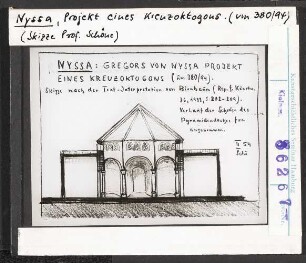 Nyssa, Projekt eines Kreuzoktogons. (um 380/94)
(Skizze Prof. Schöne)
NYSSA: GREGORS VON NYSSA PROJEKT
EINES KREUZOKTOGONS (um 380/94).
Skizze nach der Text-Interpretation von Birnbaum (Rep. f. Kunstw.
36, 1913, S. 202-209).
Verlauf der Schräge des
Pyramidendaches frei
angenommen.
II 54